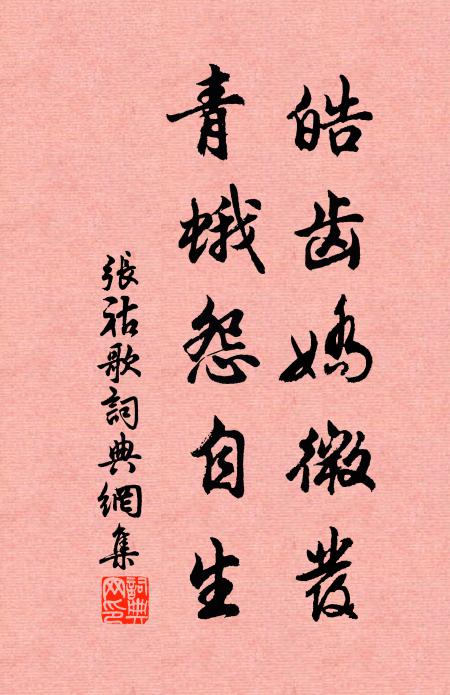 皓齿嬌微發
青蛾怨自生
張祜歌詞典網集
詞典网印